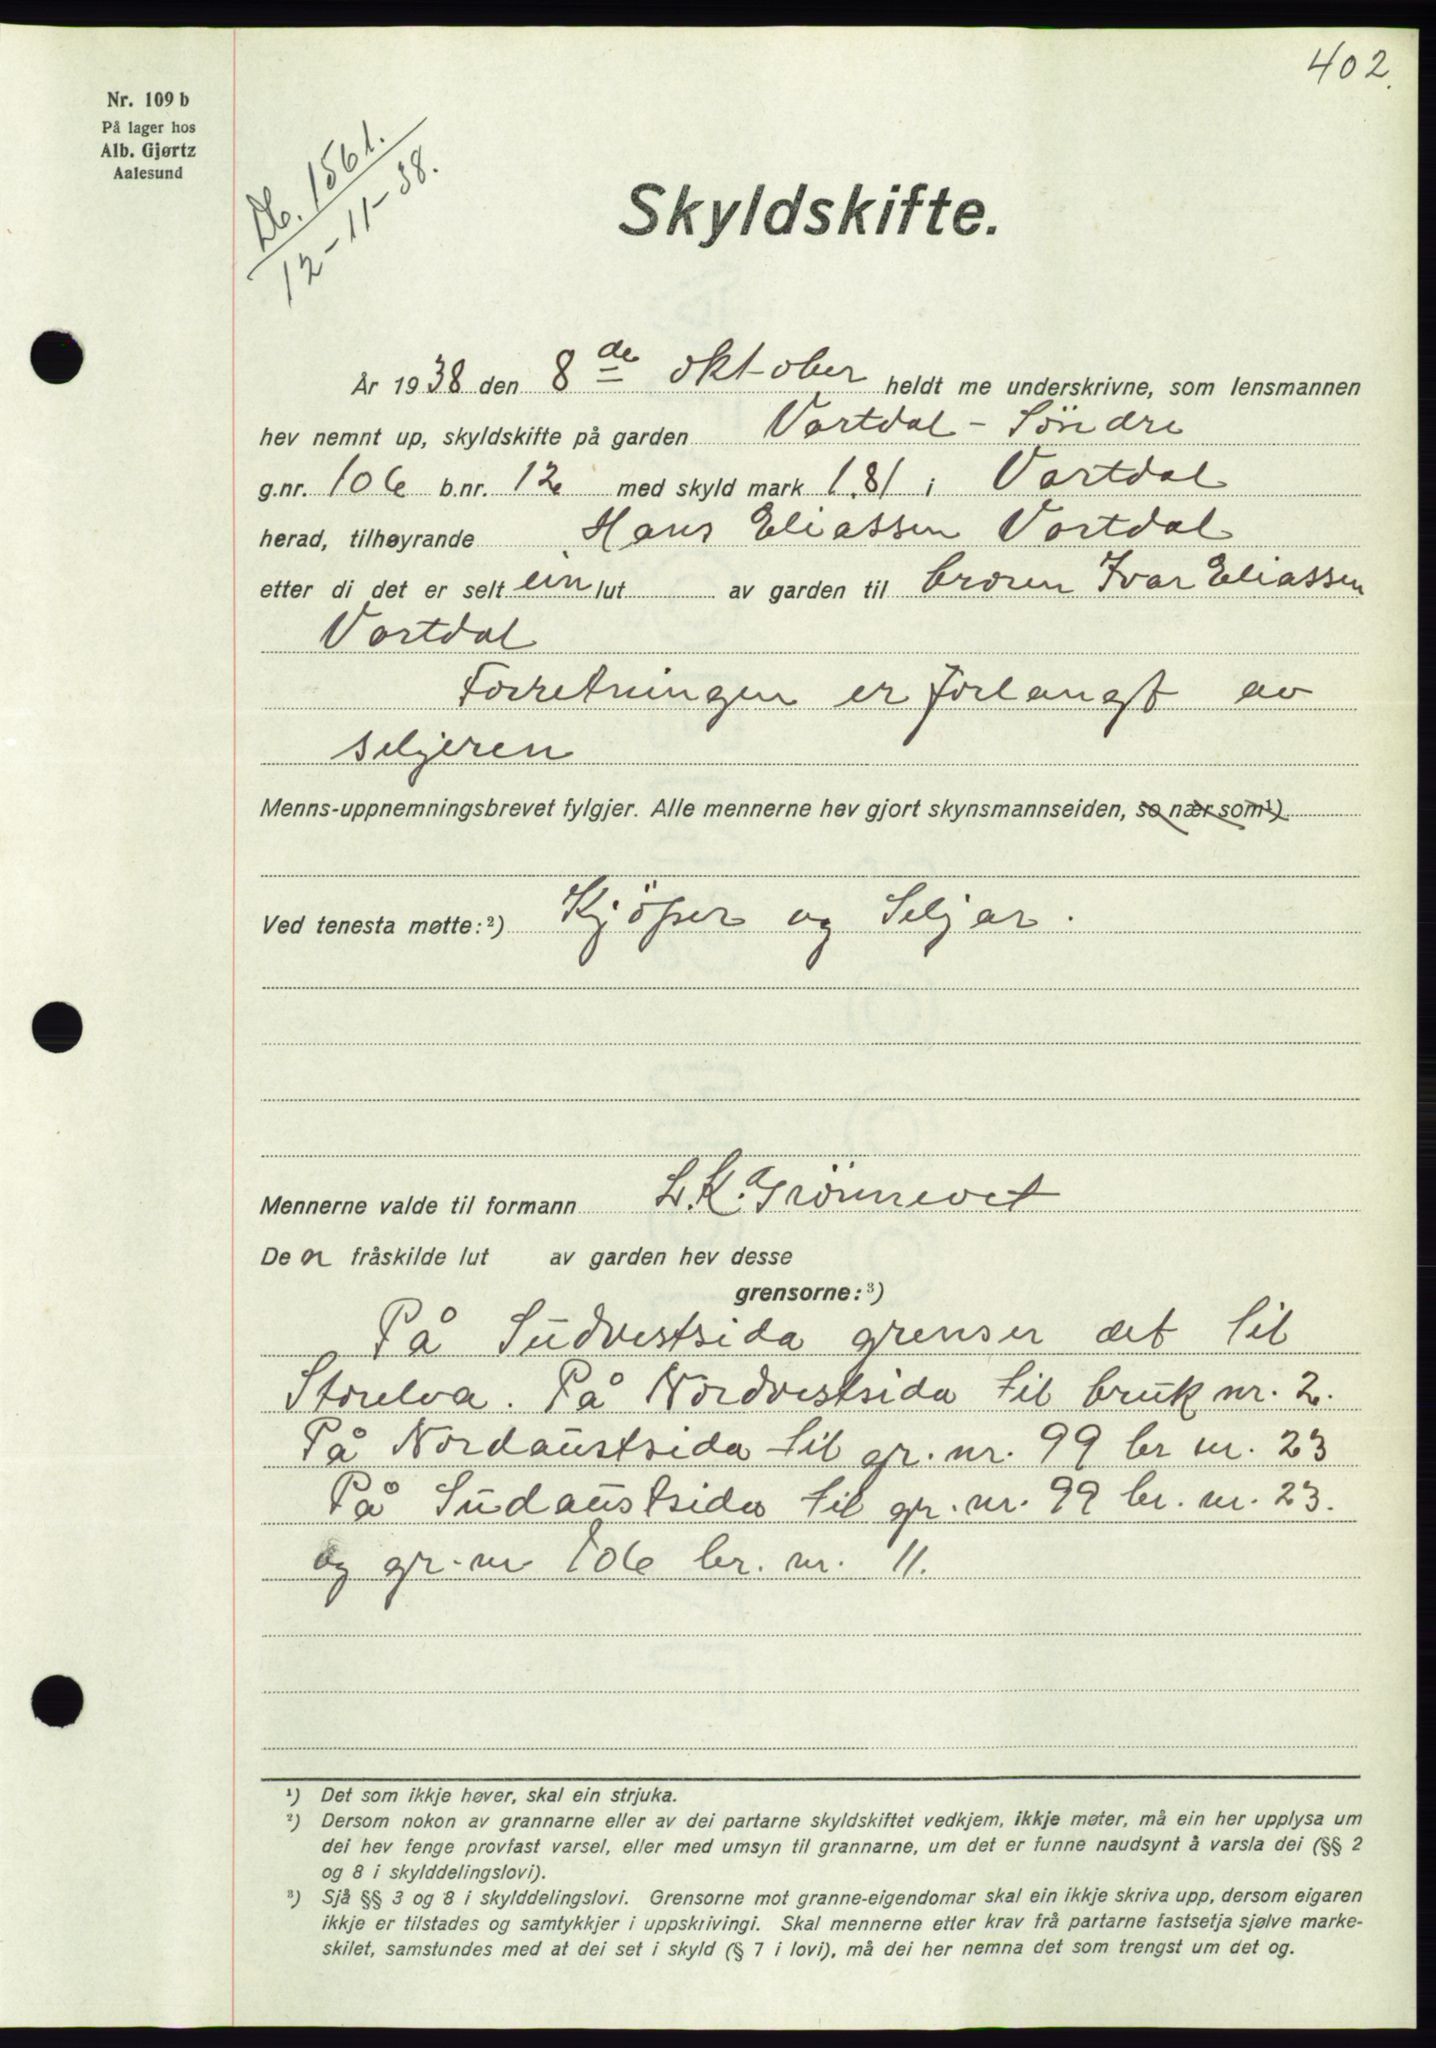 402.
Nr. 109 b
På lager hos
Alb. Gjørtz
Aalesund
Db. 1561.
12-11-38.
Skyldskifte.
År 1938 den 8de oktober heldt me underskrivne, som lensmannen
hev nemnt up, skyldskifte på garden Vartdal - Söndre
g.nr. 106 b.nr. 12 med skyld mark 1.81 i Vartdal
herad, tilhøyrande Hans Eliassen Vartdal
etter di det er selt ein lut av garden til broren Ivar Eliassen
Vartdal
Forretningen er forlangt av
seljeren
Menns-uppnemningsbrevet fylgjer. Alle mennerne hev gjort skynsmannseiden, so nær som¹)
Ved tenesta møtte:²) Kjöper og Seljar.
Mennerne valde til formann L. K. Grönnevet
De n fråskilde lut av garden hev desse
grensorne:³)
På Südvestsida grenser det til
Storelva. På Nordvestsida til bruk nr. 2.
På Nordaustsida til gr. nr. 99 br nr. 23
På Südaustsida til gr. nr. 99 br. nr. 23.
og gr. nr 106 br. nr. 11.
¹) Det som ikkje høver, skal ein strjuka.
²) Dersom nokon av grannarne eller av dei partarne skyldskiftet vedkjem, ikkje møter, må ein her upplysa um
dei hev fenge provfast varsel, eller med umsyn til grannarne, um det er funne naudsynt å varsla dei (§§ 2
og 8 i skylddelingslovi).
³) Sjå §§ 3 og 8 i skylddelingslovi. Grensorne mot granne-eigendomar skal ein ikkje skriva upp, dersom eigaren
ikkje er tilstades og samtykkjer i uppskrivingi. Skal mennerne etter krav frå partarne fastsetja sjølve marke-
skilet, samstundes med at dei set i skyld (§ 7 i lovi), må dei her nemna det som trengst um det og.